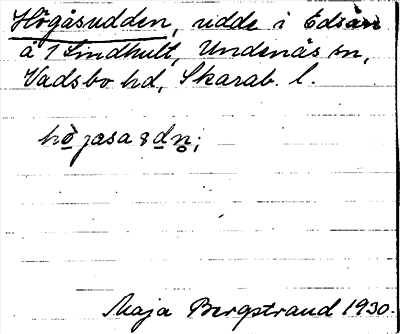 Högåsudden, udde i Edsån
å 1 Lindhult, Undenås sn,
Vadsbo hd, Skarab. l.
Maja Bergstrand 1930.